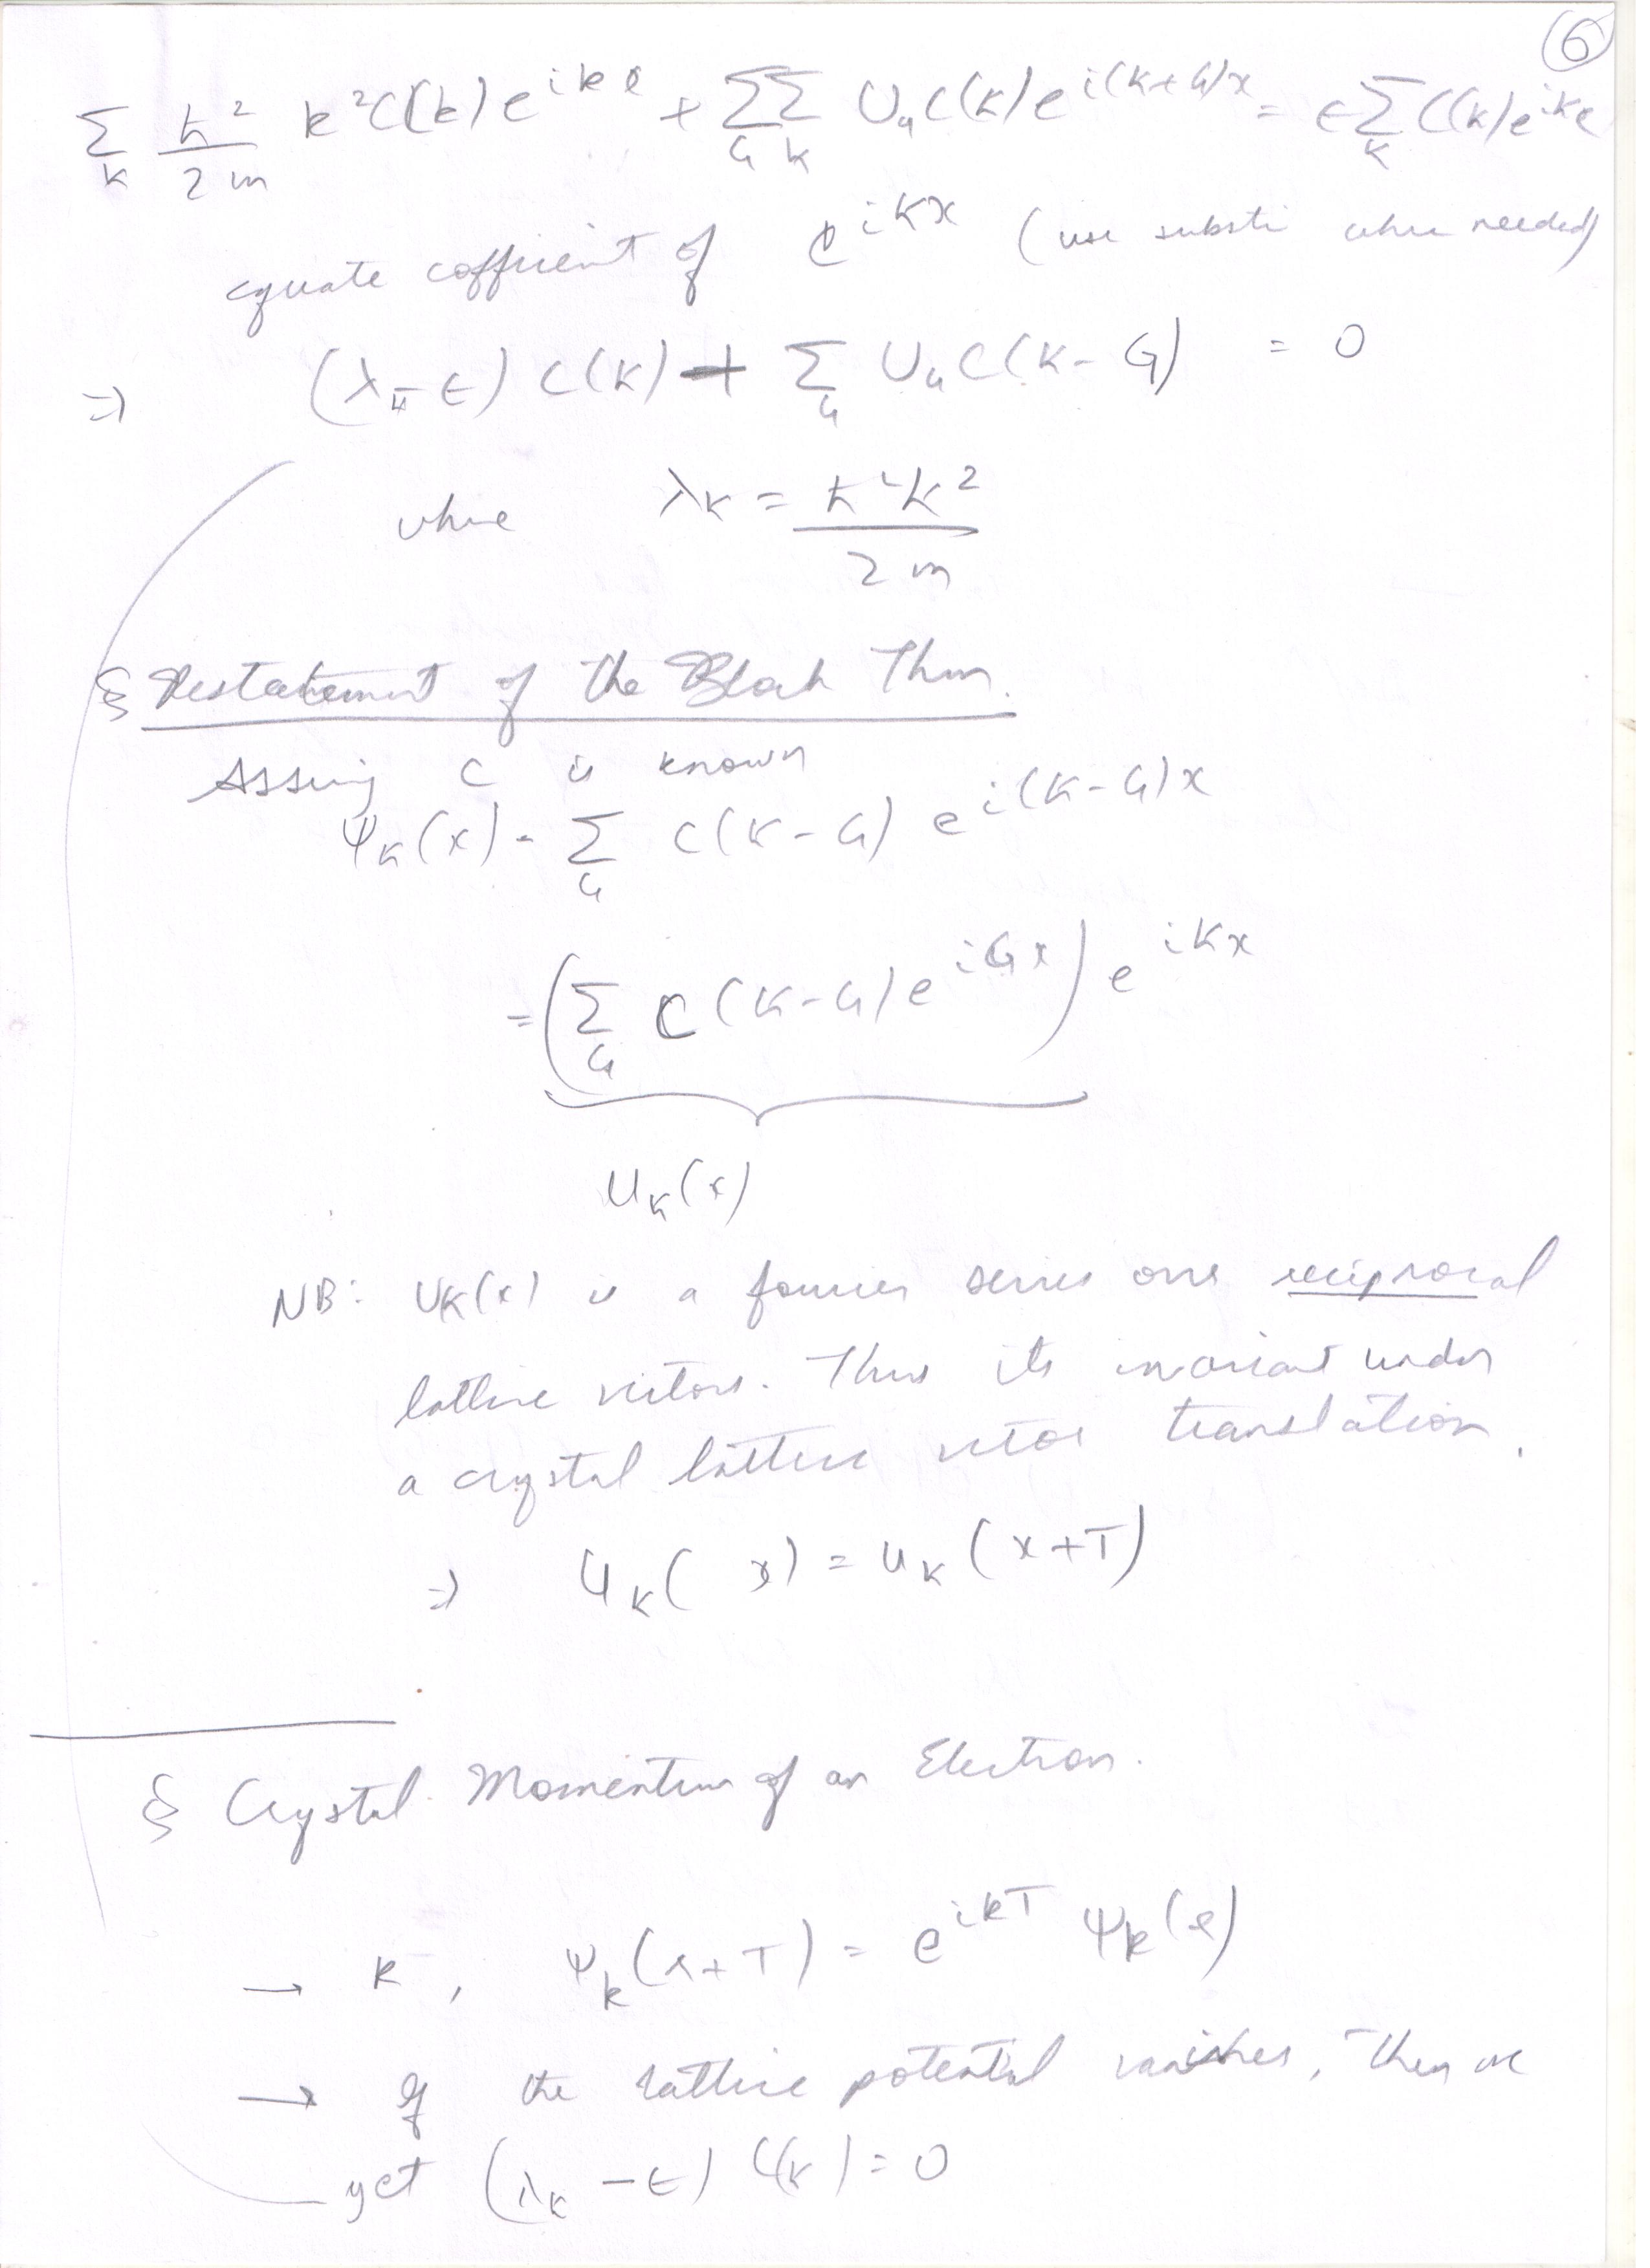 6
∑_k ħ²/2m k²C(k)e^{ikx} + ∑_G ∑_k U_G C(k)e^{i(k+G)x} = ϵ∑_k C(k)e^{ikx}
equate cofficient of e^{ikx} (use substi when needed)
⇒ (λ_k - ϵ) C(k) + ∑_G U_G C(k-G) = 0
where λ_k = ħ²k²/2m
§ Restatement of the Bloch Thm.
Assuming C is known
Ψ_k(x) = ∑_G C(k-G) e^{i(k-G)x}
= (∑_G C(k-G)e^{iGx}) e^{ikx}
u_k(x)
NB: u_k(x) is a fourier series over reciprocal
lattice vectors. Thus its invariant under
a crystal lattice vector translation.
⇒ u_k(x) = u_k(x+T)
§ Crystal Momentum of an Electron.
→ k, Ψ_k(x+T) = e^{ikT} Ψ_k(x)
→ If the lattice potential vanishes, then we
get (λ_k - ϵ) C(k) = 0